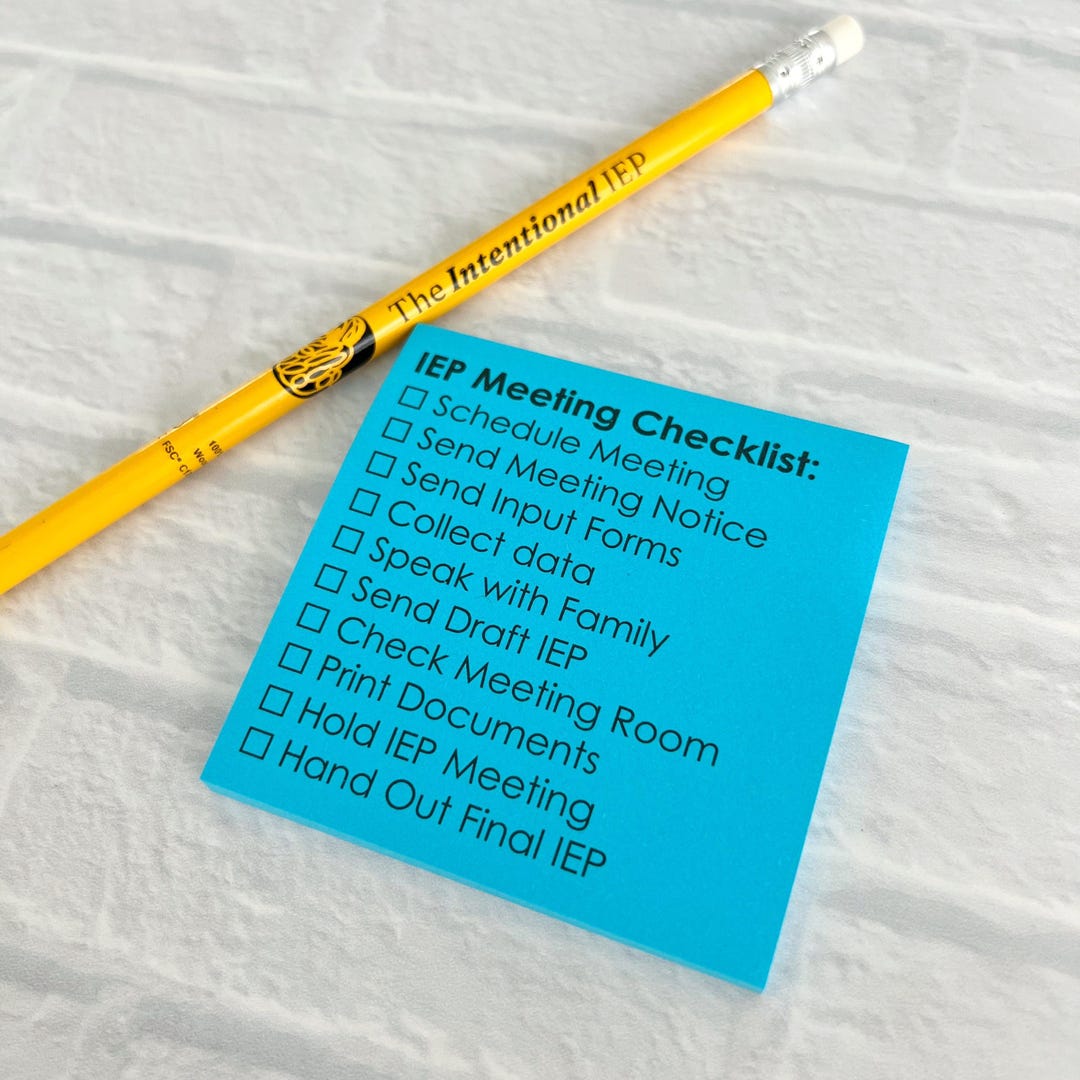 The Intentional IEP
100
FSC® C
IEP Meeting Checklist:
☐ Schedule Meeting
☐ Send Meeting Notice
☐ Send Input Forms
☐ Collect data
☐ Speak with Family
☐ Send Draft IEP
☐ Check Meeting Room
☐ Print Documents
☐ Hold IEP Meeting
☐ Hand Out Final IEP